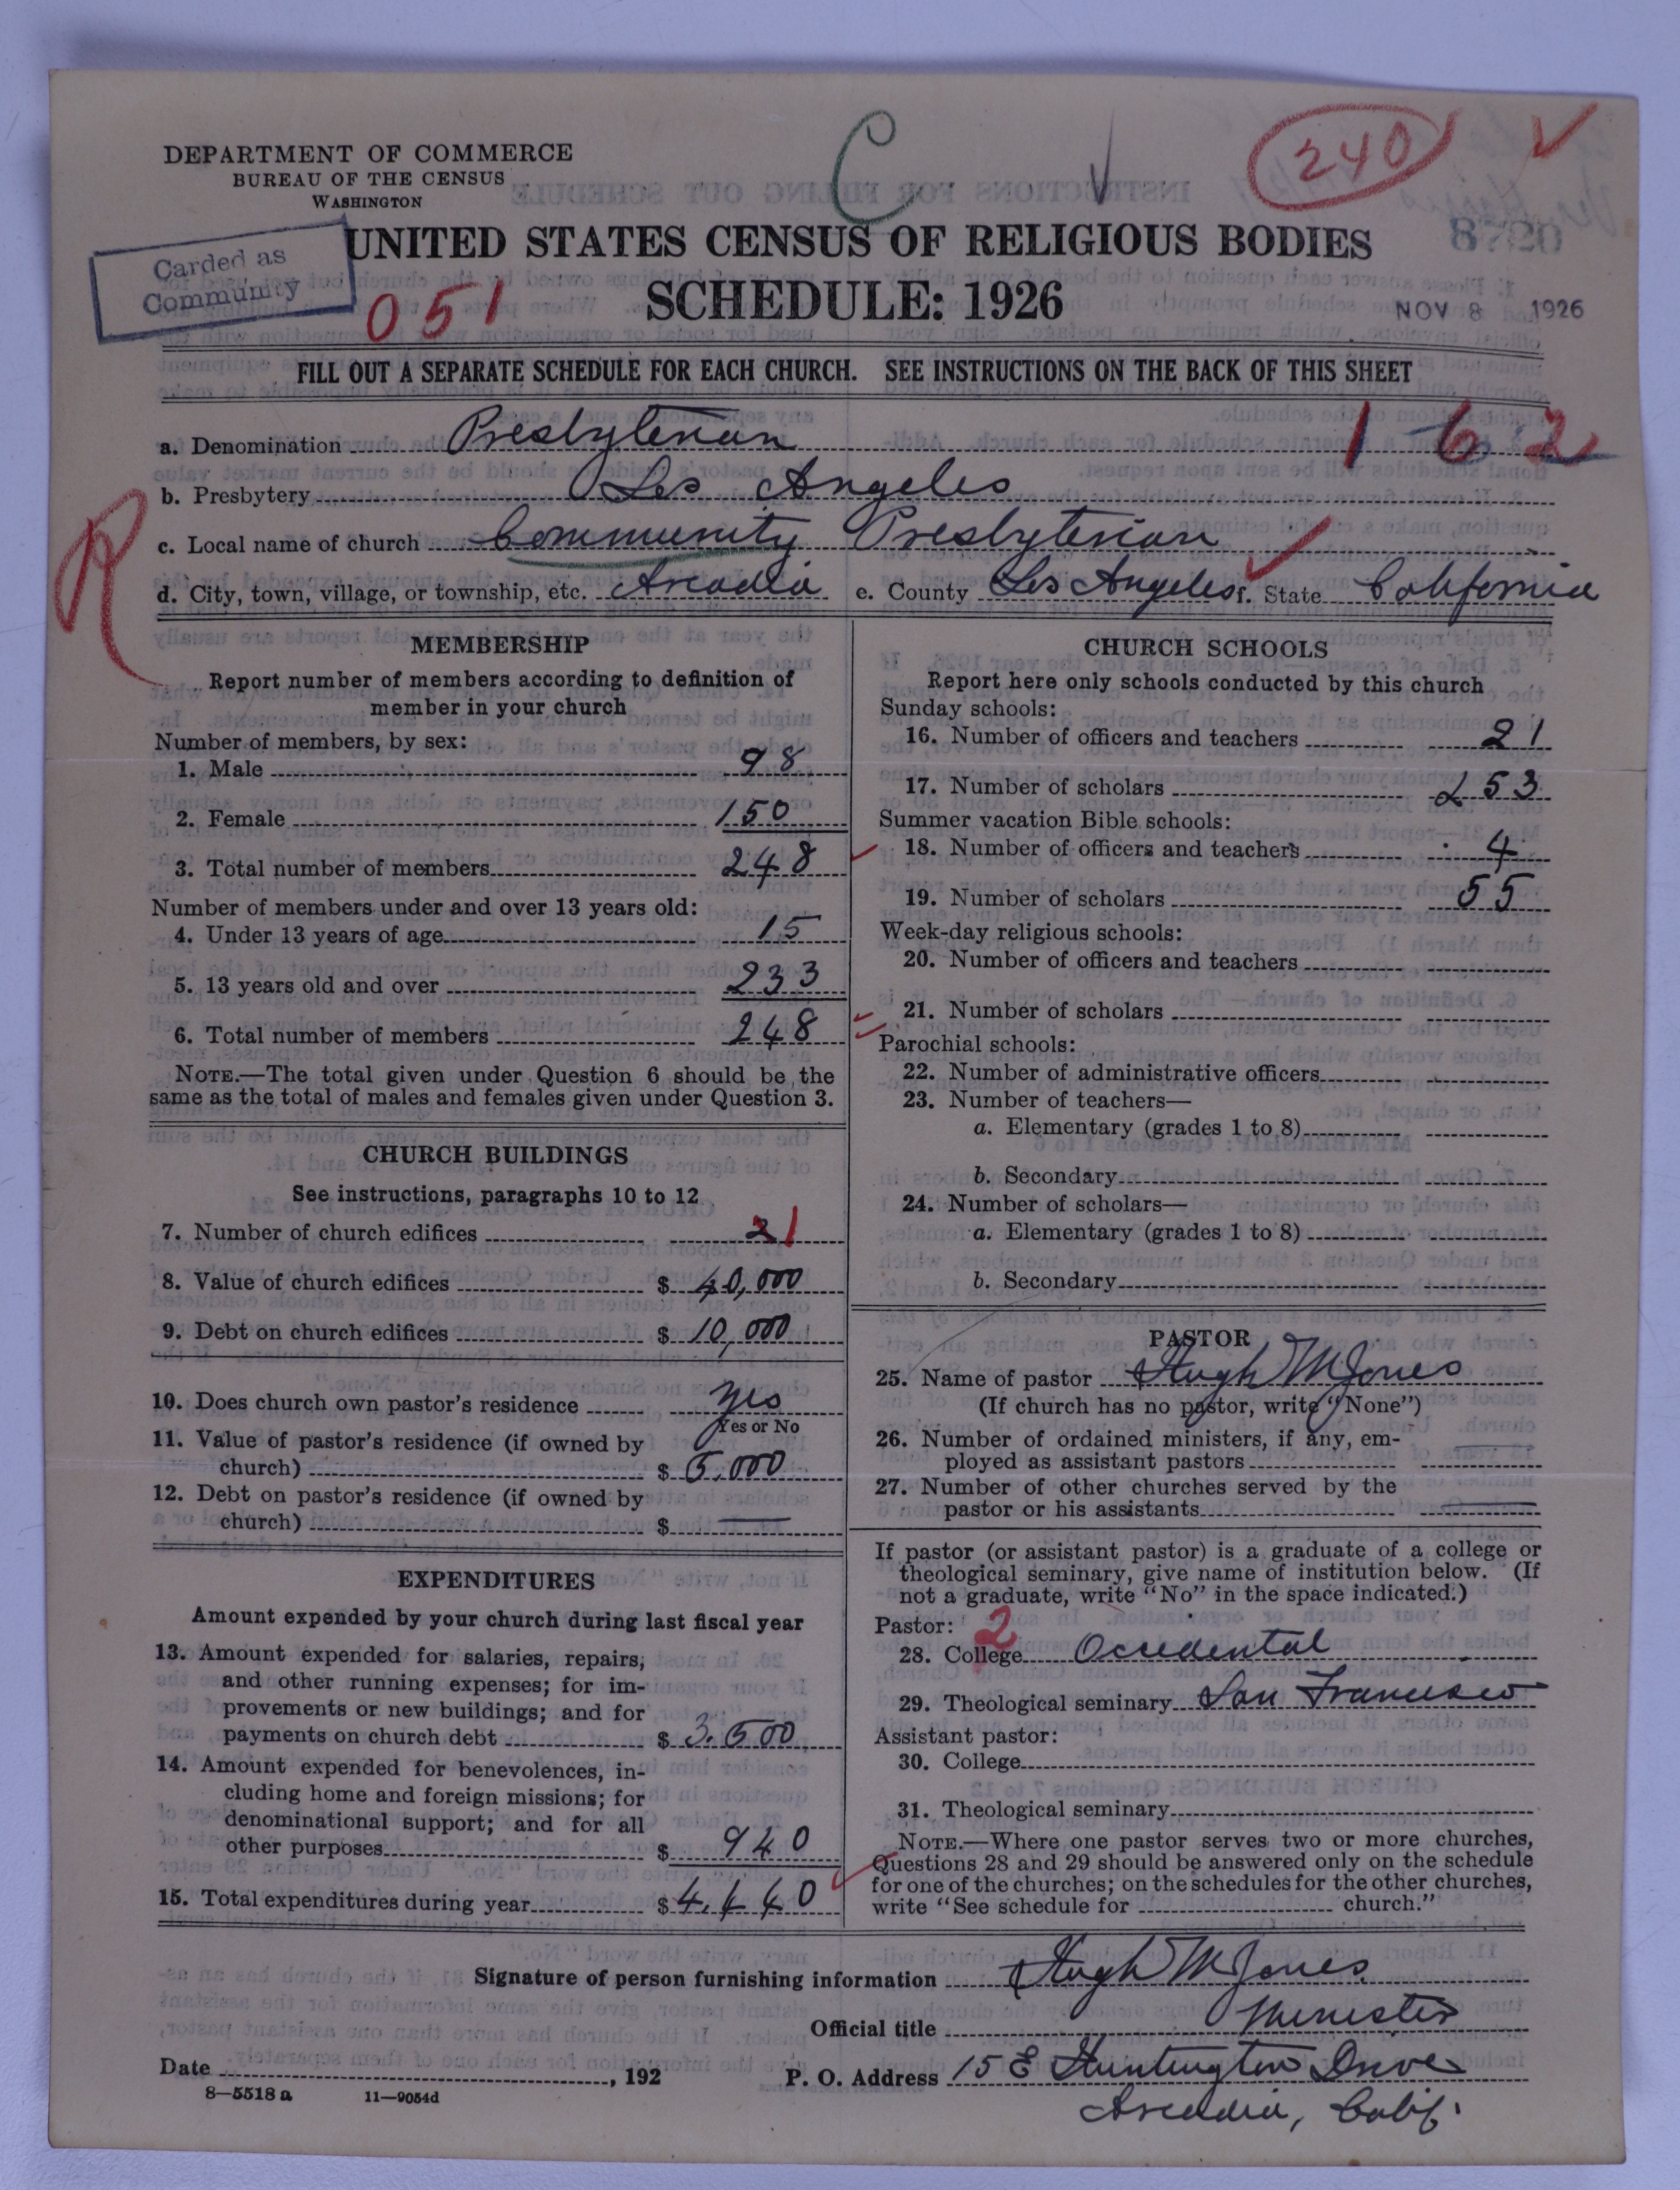 C
240
DEPARTMENT OF COMMERCE
BUREAU OF THE CENSUS
WASHINGTON
UNITED STATES CENSUS OF RELIGIOUS BODIES
8720
Carded as
Community
051
SCHEDULE: 1926
NOV 8 1926
FILL OUT A SEPARATE SCHEDULE FOR EACH CHURCH. SEE INSTRUCTIONS ON THE BACK OF THIS SHEET
a. Denomination Presbyterian
1 6 2
b. Presbytery Los Angeles
R
c. Local name of church Community Presbyterian
d. City, town, village, or township, etc. Arcadia e. County Los Angeles f. State California
MEMBERSHIP
Report number of members according to definition of
member in your church
Number of members, by sex:
1. Male 98
2. Female 150
3. Total number of members 248
Number of members under and over 13 years old:
4. Under 13 years of age 15
5. 13 years old and over 233
6. Total number of members 248
NOTE.—The total given under Question 6 should be the
same as the total of males and females given under Question 3.
CHURCH BUILDINGS
See instructions, paragraphs 10 to 12
7. Number of church edifices 2 1
8. Value of church edifices $ 40,000
9. Debt on church edifices $ 10,000
10. Does church own pastor's residence Yes
Yes or No
11. Value of pastor's residence (if owned by
church) $ 5.000
12. Debt on pastor's residence (if owned by
church) $ —
EXPENDITURES
Amount expended by your church during last fiscal year
13. Amount expended for salaries, repairs,
and other running expenses; for im-
provements or new buildings; and for
payments on church debt $ 3.500
14. Amount expended for benevolences, in-
cluding home and foreign missions; for
denominational support; and for all
other purposes $ 940
15. Total expenditures during year $ 4,440
CHURCH SCHOOLS
Report here only schools conducted by this church
Sunday schools:
16. Number of officers and teachers 21
17. Number of scholars 253
Summer vacation Bible schools:
18. Number of officers and teachers 4
19. Number of scholars 55
Week-day religious schools:
20. Number of officers and teachers
21. Number of scholars
Parochial schools:
22. Number of administrative officers
23. Number of teachers—
a. Elementary (grades 1 to 8)
b. Secondary
24. Number of scholars—
a. Elementary (grades 1 to 8)
b. Secondary
PASTOR
25. Name of pastor Hugh M Jones
(If church has no pastor, write "None")
26. Number of ordained ministers, if any, em-
ployed as assistant pastors
27. Number of other churches served by the
pastor or his assistants
If pastor (or assistant pastor) is a graduate of a college or
theological seminary, give name of institution below. (If
not a graduate, write "No" in the space indicated.)
Pastor: 2
28. College Occidental
29. Theological seminary San Francisco
Assistant pastor:
30. College
31. Theological seminary
NOTE.—Where one pastor serves two or more churches,
Questions 28 and 29 should be answered only on the schedule
for one of the churches; on the schedules for the other churches,
write "See schedule for church."
Signature of person furnishing information Hugh M Jones
Official title Minister
Date , 192
P. O. Address 15 E Huntington Drive
Arcadia, Calif.
8—5518 a 11—9054d